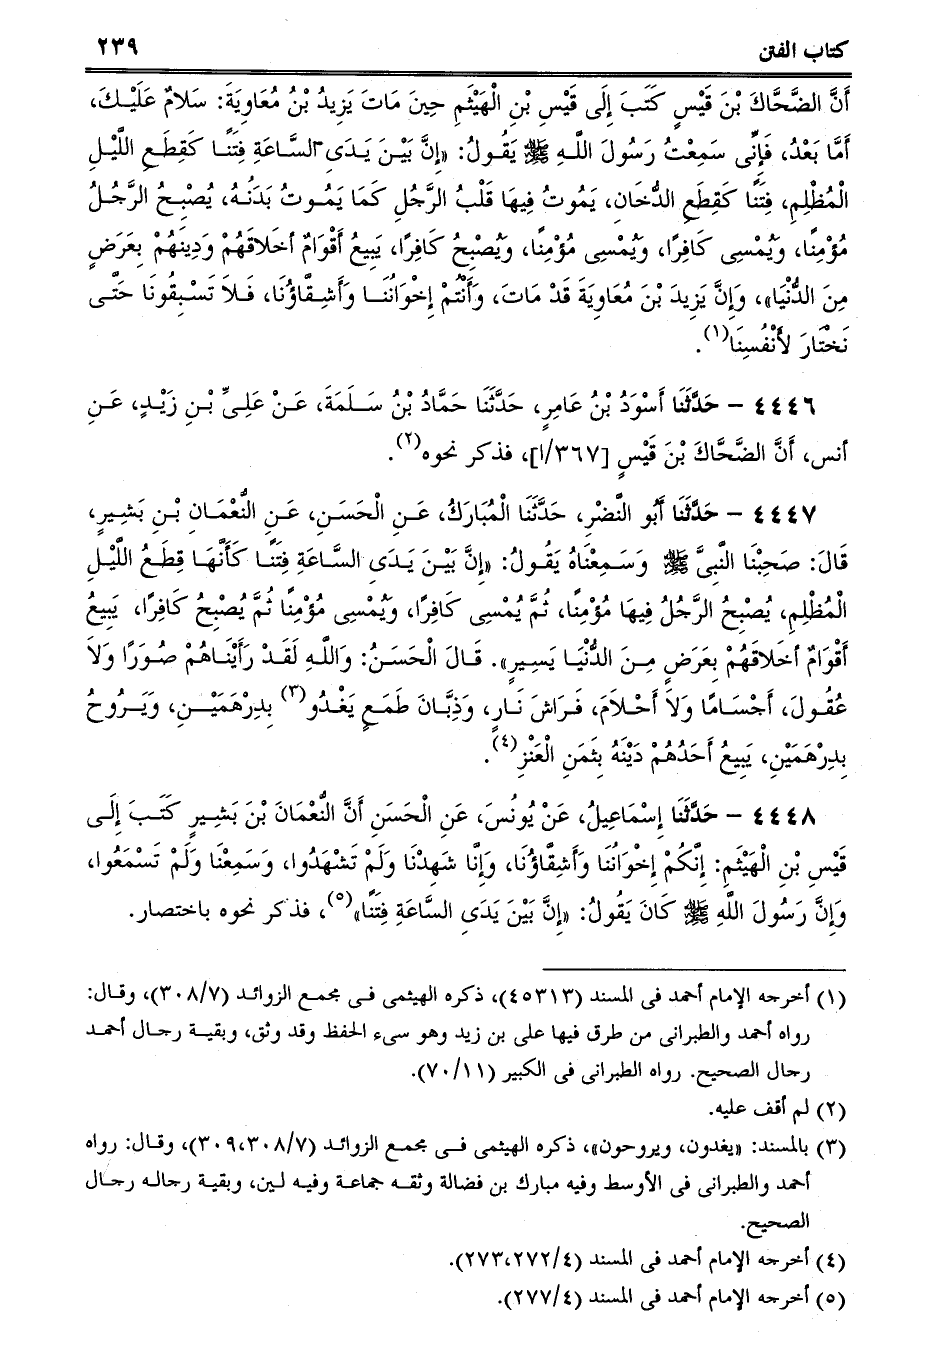 كتاب الفتن ٢٣٩
أَنَّ الضَّحَّاكَ بْنَ قَيْسٍ كَتَبَ إِلَى قَيْسِ بْنِ الْهَيْثَمِ حِينَ مَاتَ يَزِيدُ بْنُ مُعَاوِيَةَ: سَلاَمٌ عَلَيْكَ،
أَمَّا بَعْدُ، فَإِنِّى سَمِعْتُ رَسُولَ اللَّهِ ﷺ يَقُولُ: «إِنَّ بَيْنَ يَدَىِ السَّاعَةِ فِتَنًا كَقِطَعِ اللَّيْلِ
الْمُظْلِمِ، فِتَنًا كَقِطَعِ الدُّخَانِ، يَمُوتُ فِيهَا قَلْبُ الرَّجُلِ كَمَا يَمُوتُ بَدَنُهُ، يُصْبِحُ الرَّجُلُ
مُؤْمِنًا، وَيُمْسِى كَافِرًا، وَيُمْسِى مُؤْمِنًا، وَيُصْبِحُ كَافِرًا، يَبِيعُ أَقْوَامٌ أَخلاَقَهُمْ وَدِينَهُمْ بِعَرَضٍ
مِنَ الدُّنْيَا»، وَإِنَّ يَزِيدَ بْنَ مُعَاوِيَةَ قَدْ مَاتَ، وَأَنْتُمْ إِخْوَانُنَا وَأَشِقَّاؤُنَا، فَلاَ تَسْبِقُونَا حَتَّى
نَخْتَارَ لأَنْفُسِنَا(١).
٤٤٤٦ – حَدَّثَنَا أَسْوَدُ بْنُ عَامِرٍ، حَدَّثَنَا حَمَّادُ بْنُ سَلَمَةَ، عَنْ عَلِىِّ بْنِ زَيْدٍ، عَنِ
أنس، أَنَّ الضَّحَّاكَ بْنَ قَيْسٍ [٣٦٧/أ]، فذكر نحوه(٢).
٤٤٤٧ – حَدَّثَنَا أَبُو النَّضْرِ، حَدَّثَنَا الْمُبَارَكُ، عَنِ الْحَسَنِ، عَنِ النُّعْمَانِ بْنِ بَشِيرٍ،
قَالَ: صَحِبْنَا النَّبِىَّ ﷺ وَسَمِعْنَاهُ يَقُولُ: «إِنَّ بَيْنَ يَدَىِ السَّاعَةِ فِتَنًا كَأَنَّهَا قِطَعُ اللَّيْلِ
الْمُظْلِمِ، يُصْبِحُ الرَّجُلُ فِيهَا مُؤْمِنًا، ثُمَّ يُمْسِى كَافِرًا، وَيُمْسِى مُؤْمِنًا ثُمَّ يُصْبِحُ كَافِرًا، يَبِيعُ
أَقْوَامٌ أَخلاَقَهُمْ بِعَرَضٍ مِنَ الدُّنْيَا يَسِيرٍ». قَالَ الْحَسَنُ: وَاللَّهِ لَقَدْ رَأَيْنَاهُمْ صُوَرًا وَلاَ
عُقُولَ، أَجْسَامًا وَلاَ أَحْلاَمَ، فَرَاشَ نَارٍ، وَذِبَّانَ طَمَعٍ يَغْدُو(٣) بِدِرْهَمَيْنِ، وَيَرُوحُ
بِدِرْهَمَيْنِ، يَبِيعُ أَحَدُهُمْ دَيْنَهُ بِثَمَنِ الْعَنْزِ(٤).
٤٤٤٨ – حَدَّثَنَا إِسْمَاعِيلُ، عَنْ يُونُسَ، عَنِ الْحَسَنِ أَنَّ النُّعْمَانَ بْنَ بَشِيرٍ كَتَبَ إِلَى
قَيْسِ بْنِ الْهَيْثَمِ: إِنَّكُمْ إِخْوَانُنَا وَأَشِقَّاؤُنَا، وَإِنَّا شَهِدْنَا وَلَمْ تَشْهَدُوا، وَسَمِعْنَا وَلَمْ تَسْمَعُوا،
وَإِنَّ رَسُولَ اللَّهِ ﷺ كَانَ يَقُولُ: «إِنَّ بَيْنَ يَدَىِ السَّاعَةِ فِتَنًا»(٥)، فذكر نحوه باختصار.
(١) أخرجه الإمام أحمد فى المسند (٤٥٣١٣)، ذكره الهيثمى فى مجمع الزوائد (٣٠٨/٧)، وقال:
رواه أحمد والطبرانى من طرق فيها على بن زيد وهو سىء الحفظ وقد وثق، وبقية رجال أحمد
رجال الصحيح. رواه الطبرانى فى الكبير (٧٠/١١).
(٢) لم أقف عليه.
(٣) بالمسند: «يغدون، ويروحون»، ذكره الهيثمى فى مجمع الزوائد (٣٠٩،٣٠٨/٧)، وقال: رواه
أحمد والطبرانى فى الأوسط وفيه مبارك بن فضالة وثقه جماعة وفيه لين، وبقية رجاله رجال
الصحيح.
(٤) أخرجه الإمام أحمد فى المسند (٢٧٣،٢٧٢/٤).
(٥) أخرجه الإمام أحمد فى المسند (٢٧٧/٤).